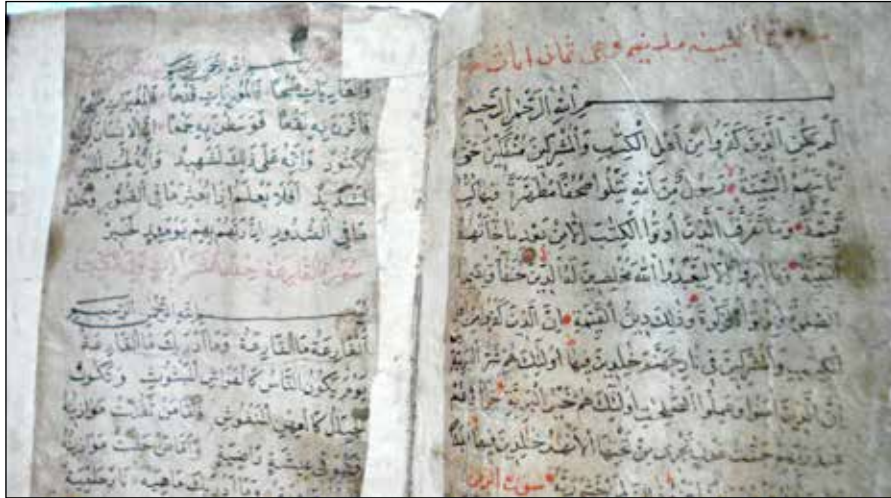 البينة مدنية وهي ثمان ايات
بسم الله الرحمن الرحيم
لَمْ يَكُنِ الَّذِينَ كَفَرُوا مِنْ اَهْلِ الْكِتٰبِ وَالْمُشْرِكِينَ مُنْفَكِّينَ حَتّٰى
تَاْتِيَهُمُ الْبَيِّنَةُ رَسُولٌ مِنَ اللّٰهِ يَتْلُوا صُحُفًا مُطَهَّرَةً فِيهَا كُتُبٌ
قَيِّمَةٌ وَمَا تَفَرَّقَ الَّذِينَ اُوتُوا الْكِتٰبَ اِلَّا مِنْ بَعْدِ مَا جَاءَتْهُمُ
الْبَيِّنَةُ وَمَا اُمِرُوا اِلَّا لِيَعْبُدُوا اللّٰهَ مُخْلِصِينَ لَهُ الدِّينَ حُنَفَاءَ وَيُقِيمُوا
الصَّلٰوةَ وَيُؤْتُوا الزَّكٰوةَ وَذٰلِكَ دِينُ الْقَيِّمَةِ اِنَّ الَّذِينَ كَفَرُوا مِنْ
الْكِتٰبِ وَالْمُشْرِكِينَ فِي نَارِ جَهَنَّمَ خٰلِدِينَ فِيهَا اُولٰئِكَ هُمْ شَرُّ الْبَرِيَّةِ
اِنَّ الَّذِينَ اٰمَنُوا وَعَمِلُوا الصّٰلِحٰتِ اُولٰئِكَ هُمْ خَيْرُ الْبَرِيَّةِ
جَنّٰتُ عَدْنٍ تَجْرِي مِنْ تَحْتِهَا الْاَنْهٰرُ خٰلِدِينَ فِيهَا
سورة
بسم الله الرحمن الرحيم
وَالْعَادِيَاتِ ضَبْحًا فَالْمُورِيَاتِ قَدْحًا فَالْمُغِيرَاتِ صُبْحًا
فَاَثَرْنَ بِهِ نَقْعًا فَوَسَطْنَ بِهِ جَمْعًا اِنَّ الْاِنْسَانَ لِرَبِّهِ
لَكَنُودٌ وَاِنَّهُ عَلٰى ذٰلِكَ لَشَهِيدٌ وَاِنَّهُ لِحُبِّ الْخَيْرِ
لَشَدِيدٌ اَفَلَا يَعْلَمُ اِذَا بُعْثِرَ مَا فِي الْقُبُورِ وَحُصِّلَ
مَا فِي الصُّدُورِ اِنَّ رَبَّهُمْ بِهِمْ يَوْمَئِذٍ لَخَبِيرٌ
سورة القارعة
بسم الله الرحمن الرحيم
اَلْقَارِعَةُ مَا الْقَارِعَةُ وَمَا اَدْرٰيكَ مَا الْقَارِعَةُ
يَوْمَ يَكُونُ النَّاسُ كَالْفَرَاشِ الْمَبْثُوثِ وَتَكُونُ
الْجِبَالُ كَالْعِهْنِ الْمَنْفُوشِ فَاَمَّا مَنْ ثَقُلَتْ مَوَازِينُهُ
فَهُوَ فِي عِيشَةٍ رَاضِيَةٍ وَاَمَّا مَنْ خَفَّتْ مَوَازِينُهُ
وَمَا اَدْرٰيكَ مَاهِيَهْ نَارٌ حَامِيَةٌ